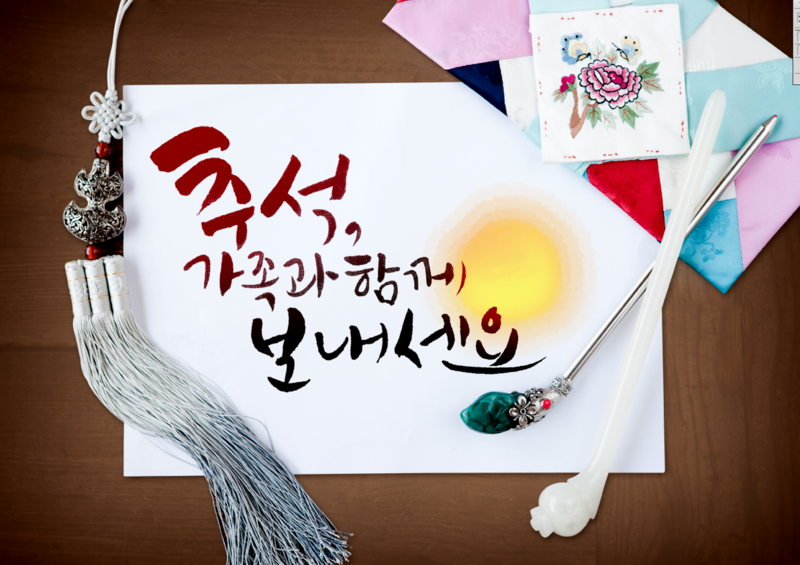 추석,
가족과 함께
보내세요